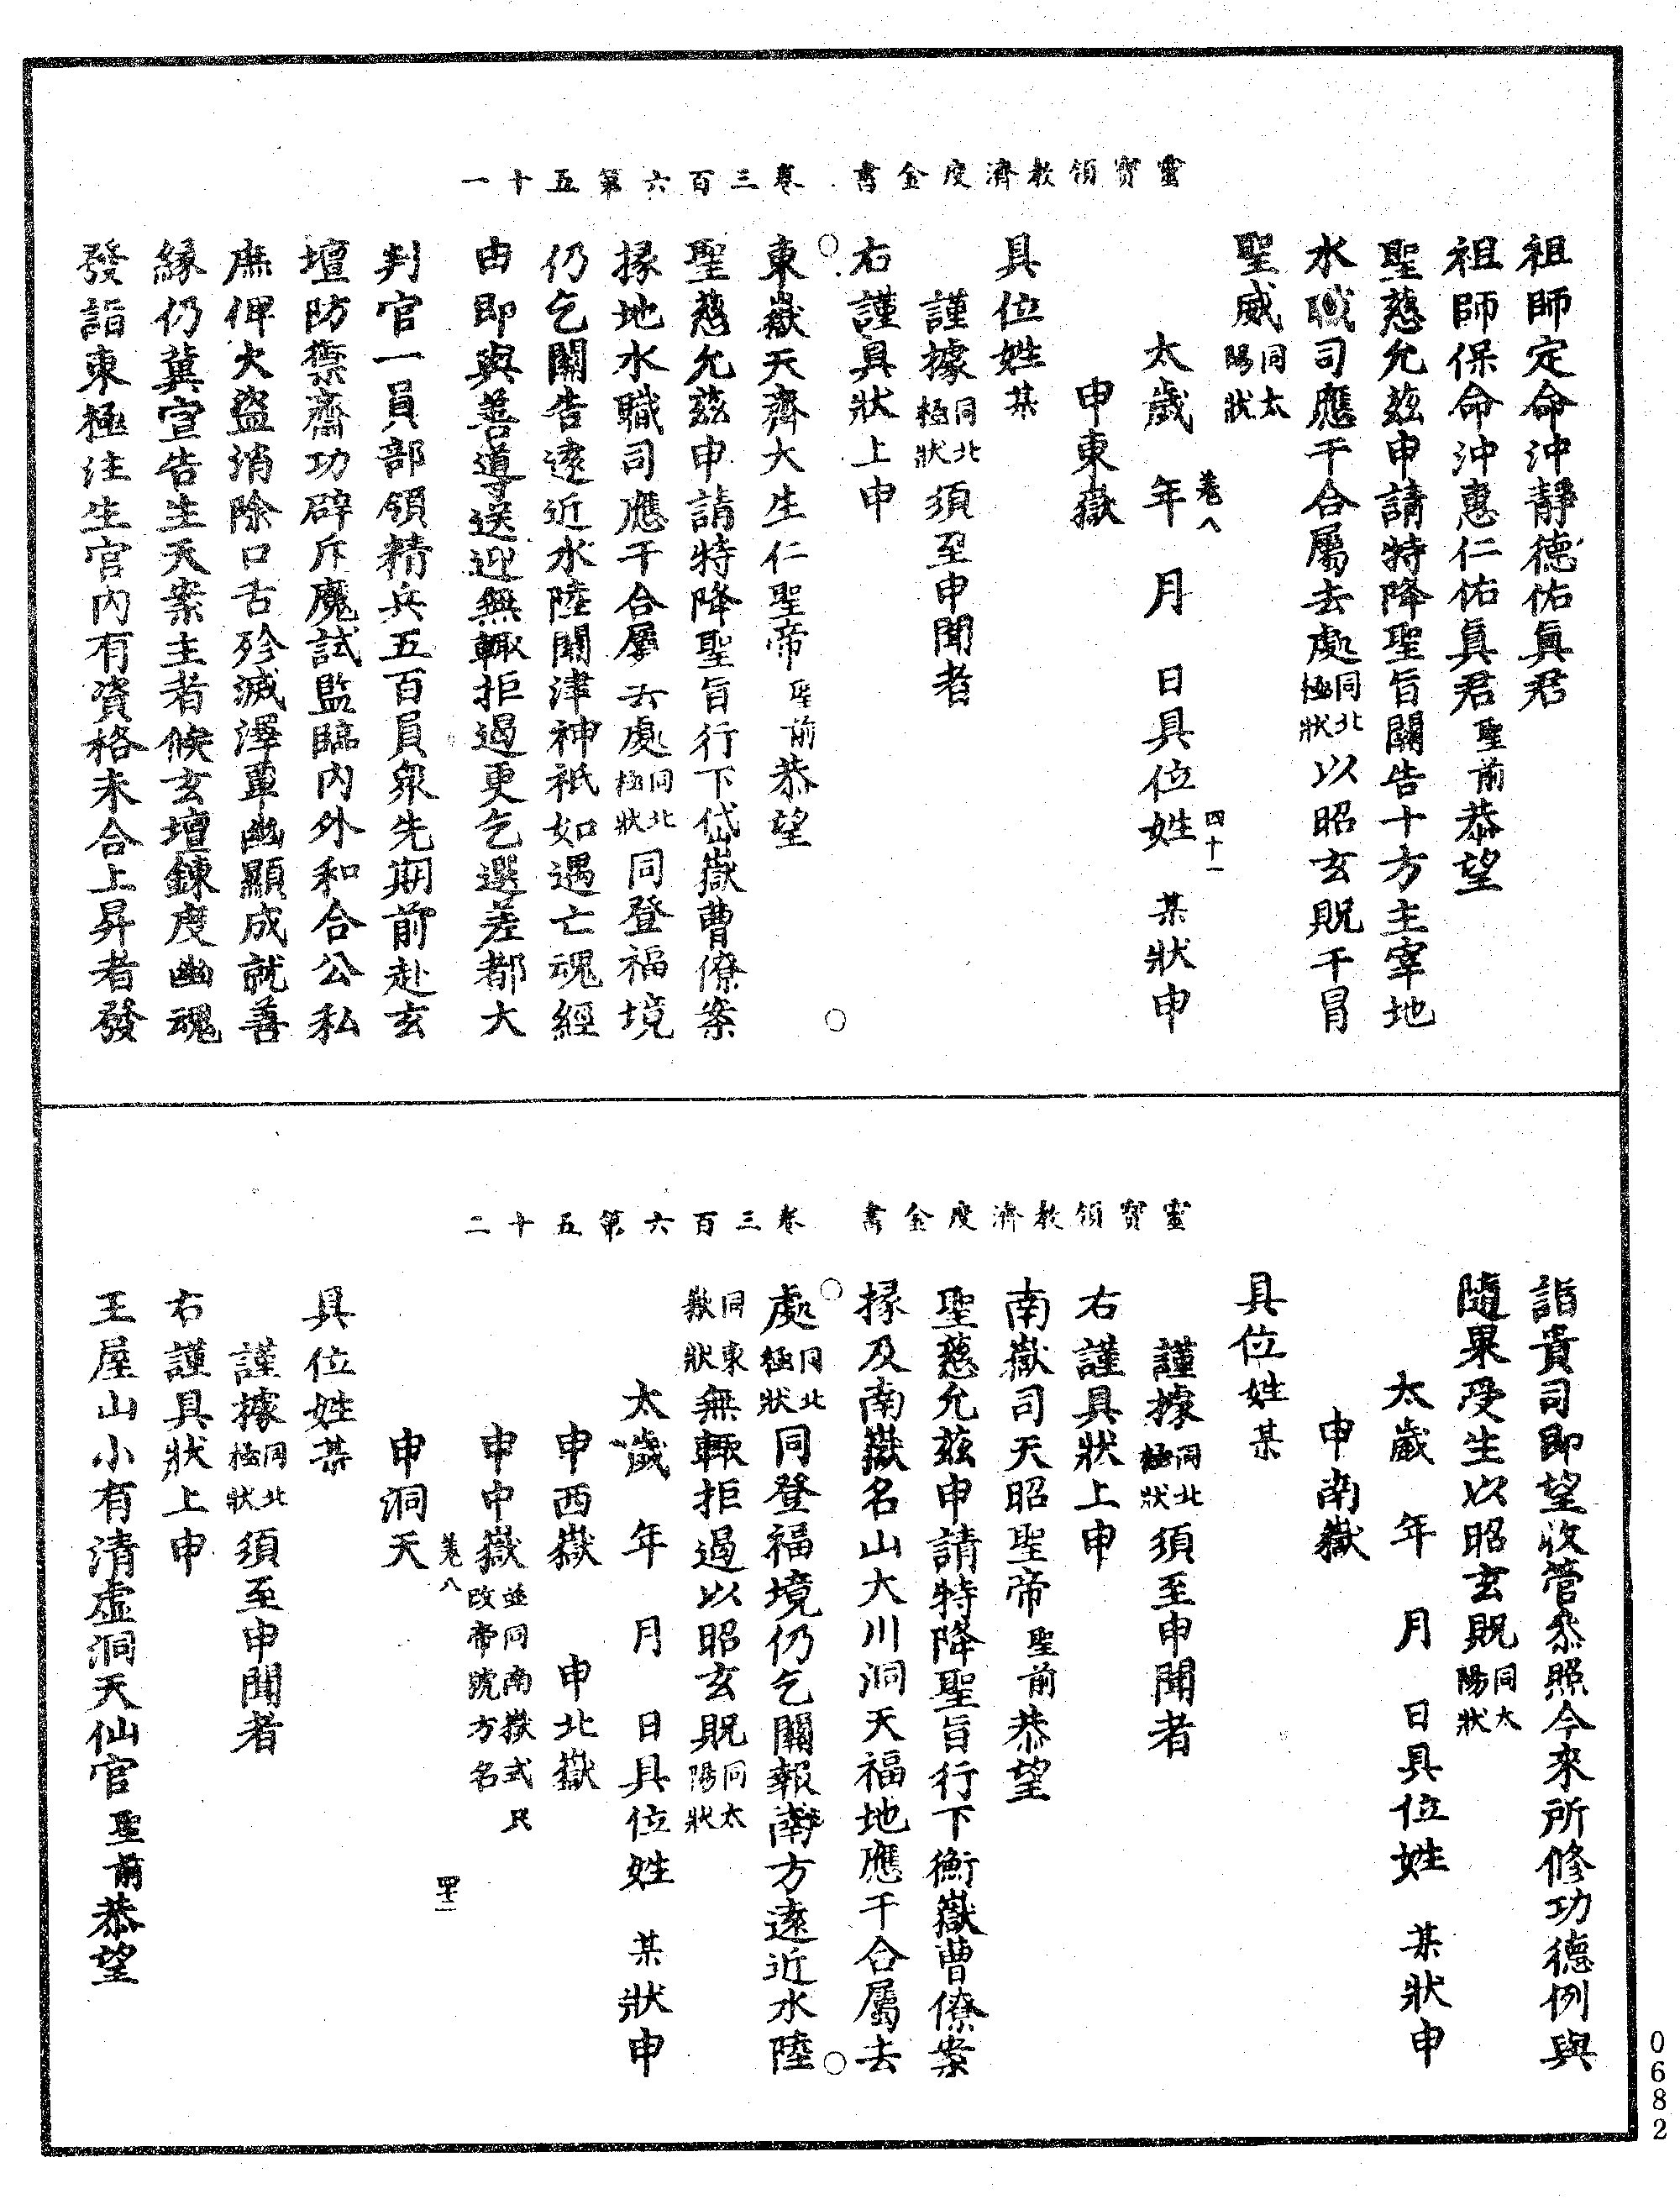 靈寶領教濟度金書　卷三百六第五十一
祖師定命沖靜德佑眞君
祖師保命沖惠仁佑眞君聖前恭望
聖慈允茲申請特降聖旨關告十方主宰地
水職司應干合屬去處同北極狀以昭玄貺干冒
聖威同太陽狀
卷八　四十一
太歲　年　月　日具位姓　某狀申
申東嶽
具位姓某
謹據同北極狀須至申聞者
右謹具狀上申
東嶽天齊大生仁聖帝聖前恭望
聖慈允茲申請特降聖旨行下岱嶽曹僚案
掾地水職司應干合屬去處同北極狀同登福境
仍乞關告遠近水陸關津神祇如遇亡魂經
由即與善導送迎無輒拒遏更乞選差都大
判官一員部領精兵五百員衆先期前赴玄
壇防禦齋功辟斥魔試監臨內外和合公私
庶俾火盜消除口舌殄滅澤覃幽顯成就善
緣仍冀宣告生天案主者候玄壇鍊度幽魂
發詣東極注生官內有資格未合上昇者發
靈寶領教濟度金書　卷三百六第五十二
詣貴司即望收管叅照今來所修功德例與
隨果受生以昭玄貺同太陽狀
太歲　年　月　日具位姓　某狀申
申南嶽
具位姓某
謹據同北極狀須至申聞者
右謹具狀上申
南嶽司天昭聖帝聖前恭望
聖慈允茲申請特降聖旨行下衡嶽曹僚案
掾及南嶽名山大川洞天福地應干合屬去
處同北極狀同登福境仍乞關報南方遠近水陸
同東嶽狀無輒拒遏以昭玄貺同太陽狀
太歲　年　月　日具位姓　某狀申
申西嶽　申北嶽
申中嶽並同南嶽式只改帝號方名
卷八　四十二
申洞天
具位姓某
謹據同北極狀須至申聞者
右謹具狀上申
王屋山小有清虛洞天仙官聖前恭望
0682